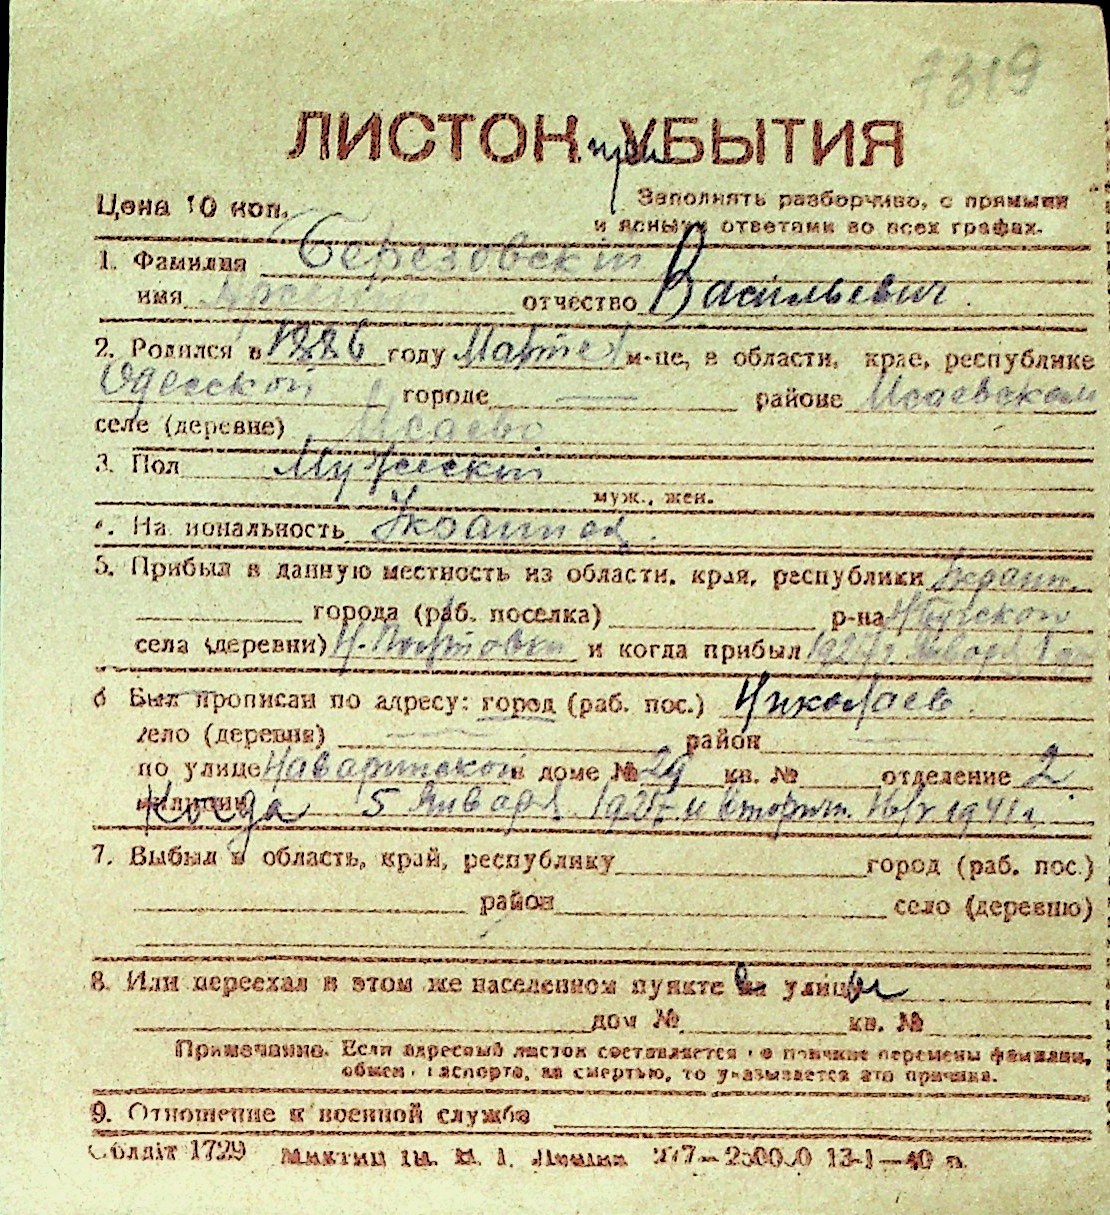 7319
ЛИСТОК при УБЫТИЯ
Цена 10 коп.
Заполнять разборчиво, с прямыми
и ясными ответами во всех графах.
1. Фамилия Березовскій
имя Арсений отчество Васильевич.
2. Родился в 1886 году Марте м-це, в области, крае, республике
Одесской городе — районе Исаевском
селе (деревне) Исаево
3. Пол Мужескій
муж., жен.
4. На иональность Украинец.
5. Прибыл в данную местность из области, края, республики Украин.
города (раб. поселка) р-на Н Бугской
села (деревни) и когда прибыл 1927 г Января 1
6 Был прописан по адресу: город (раб. пос.) Николаев.
село (деревня) — район —
по улице Наваринской в доме № 29 кв. № отделение 2
милиции Когда 5 Января 1927 и вторичн. 1941 г.
7. Выбыл в область, край, республику город (раб. пос.)
район село (деревню)
8. Или переехал в этом же населенном пункте в улицы
дом № кв. №
Примечание. Если адресный листок составляется по причине перемены фамилии,
обмена паспорта, за смертью, то указывается эта причина.
9. Отношение к военной службе
Облліт 1729 Миктип ім. В. І. Леніна 277—250000 13-1—40 р.